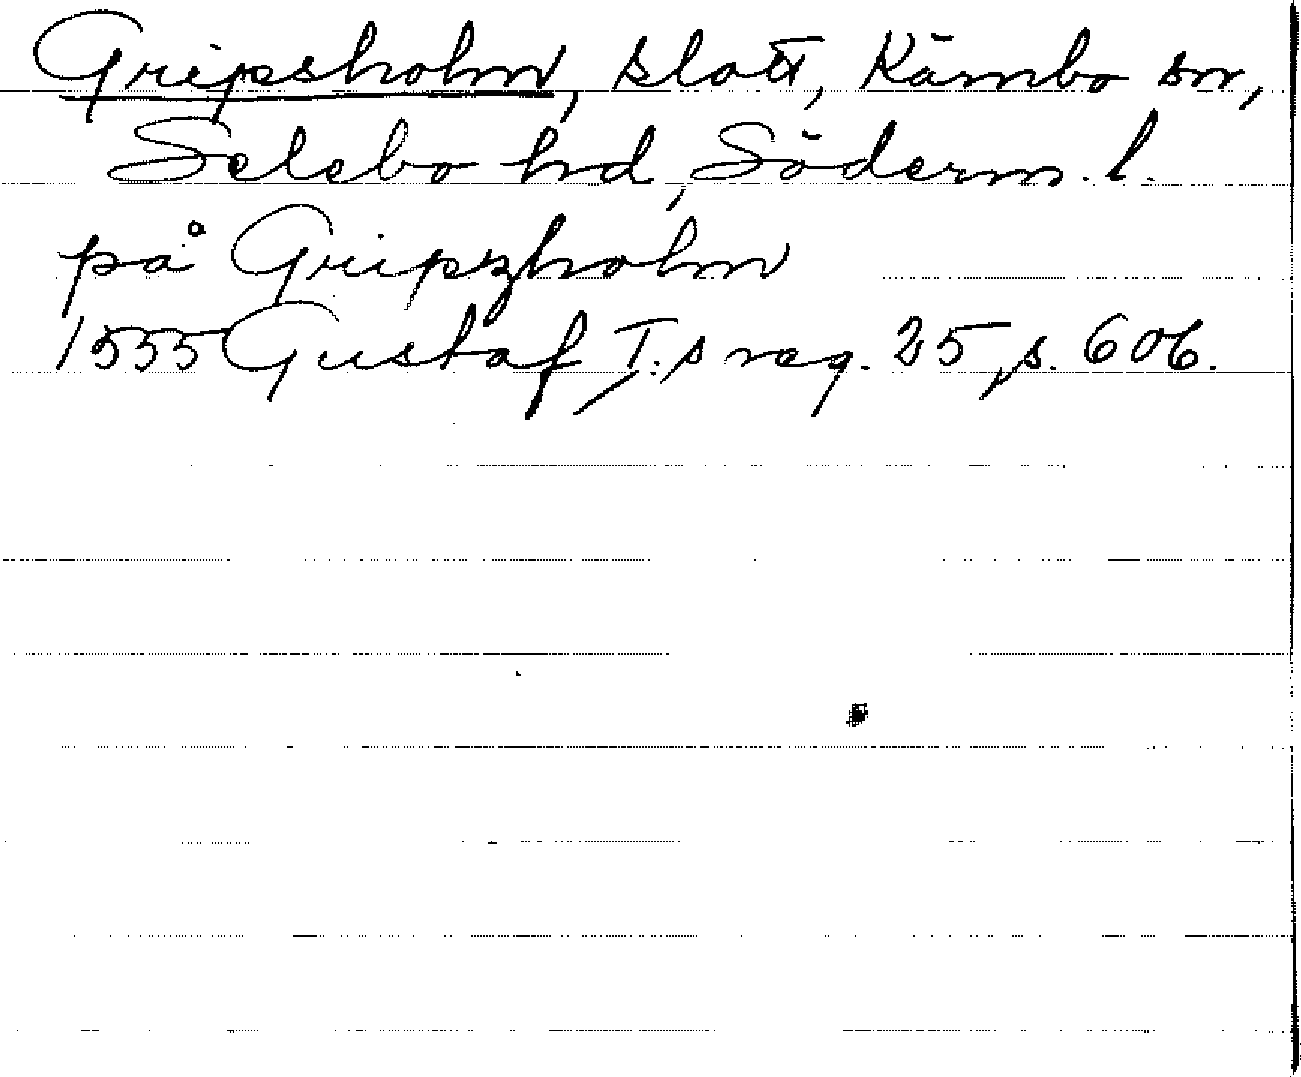 Gripsholm, slott, Kärnbo sn,
Selebo hd, Söderm. l.
på Gripzholm
1555 Gustaf I:s reg. 25, s. 606.